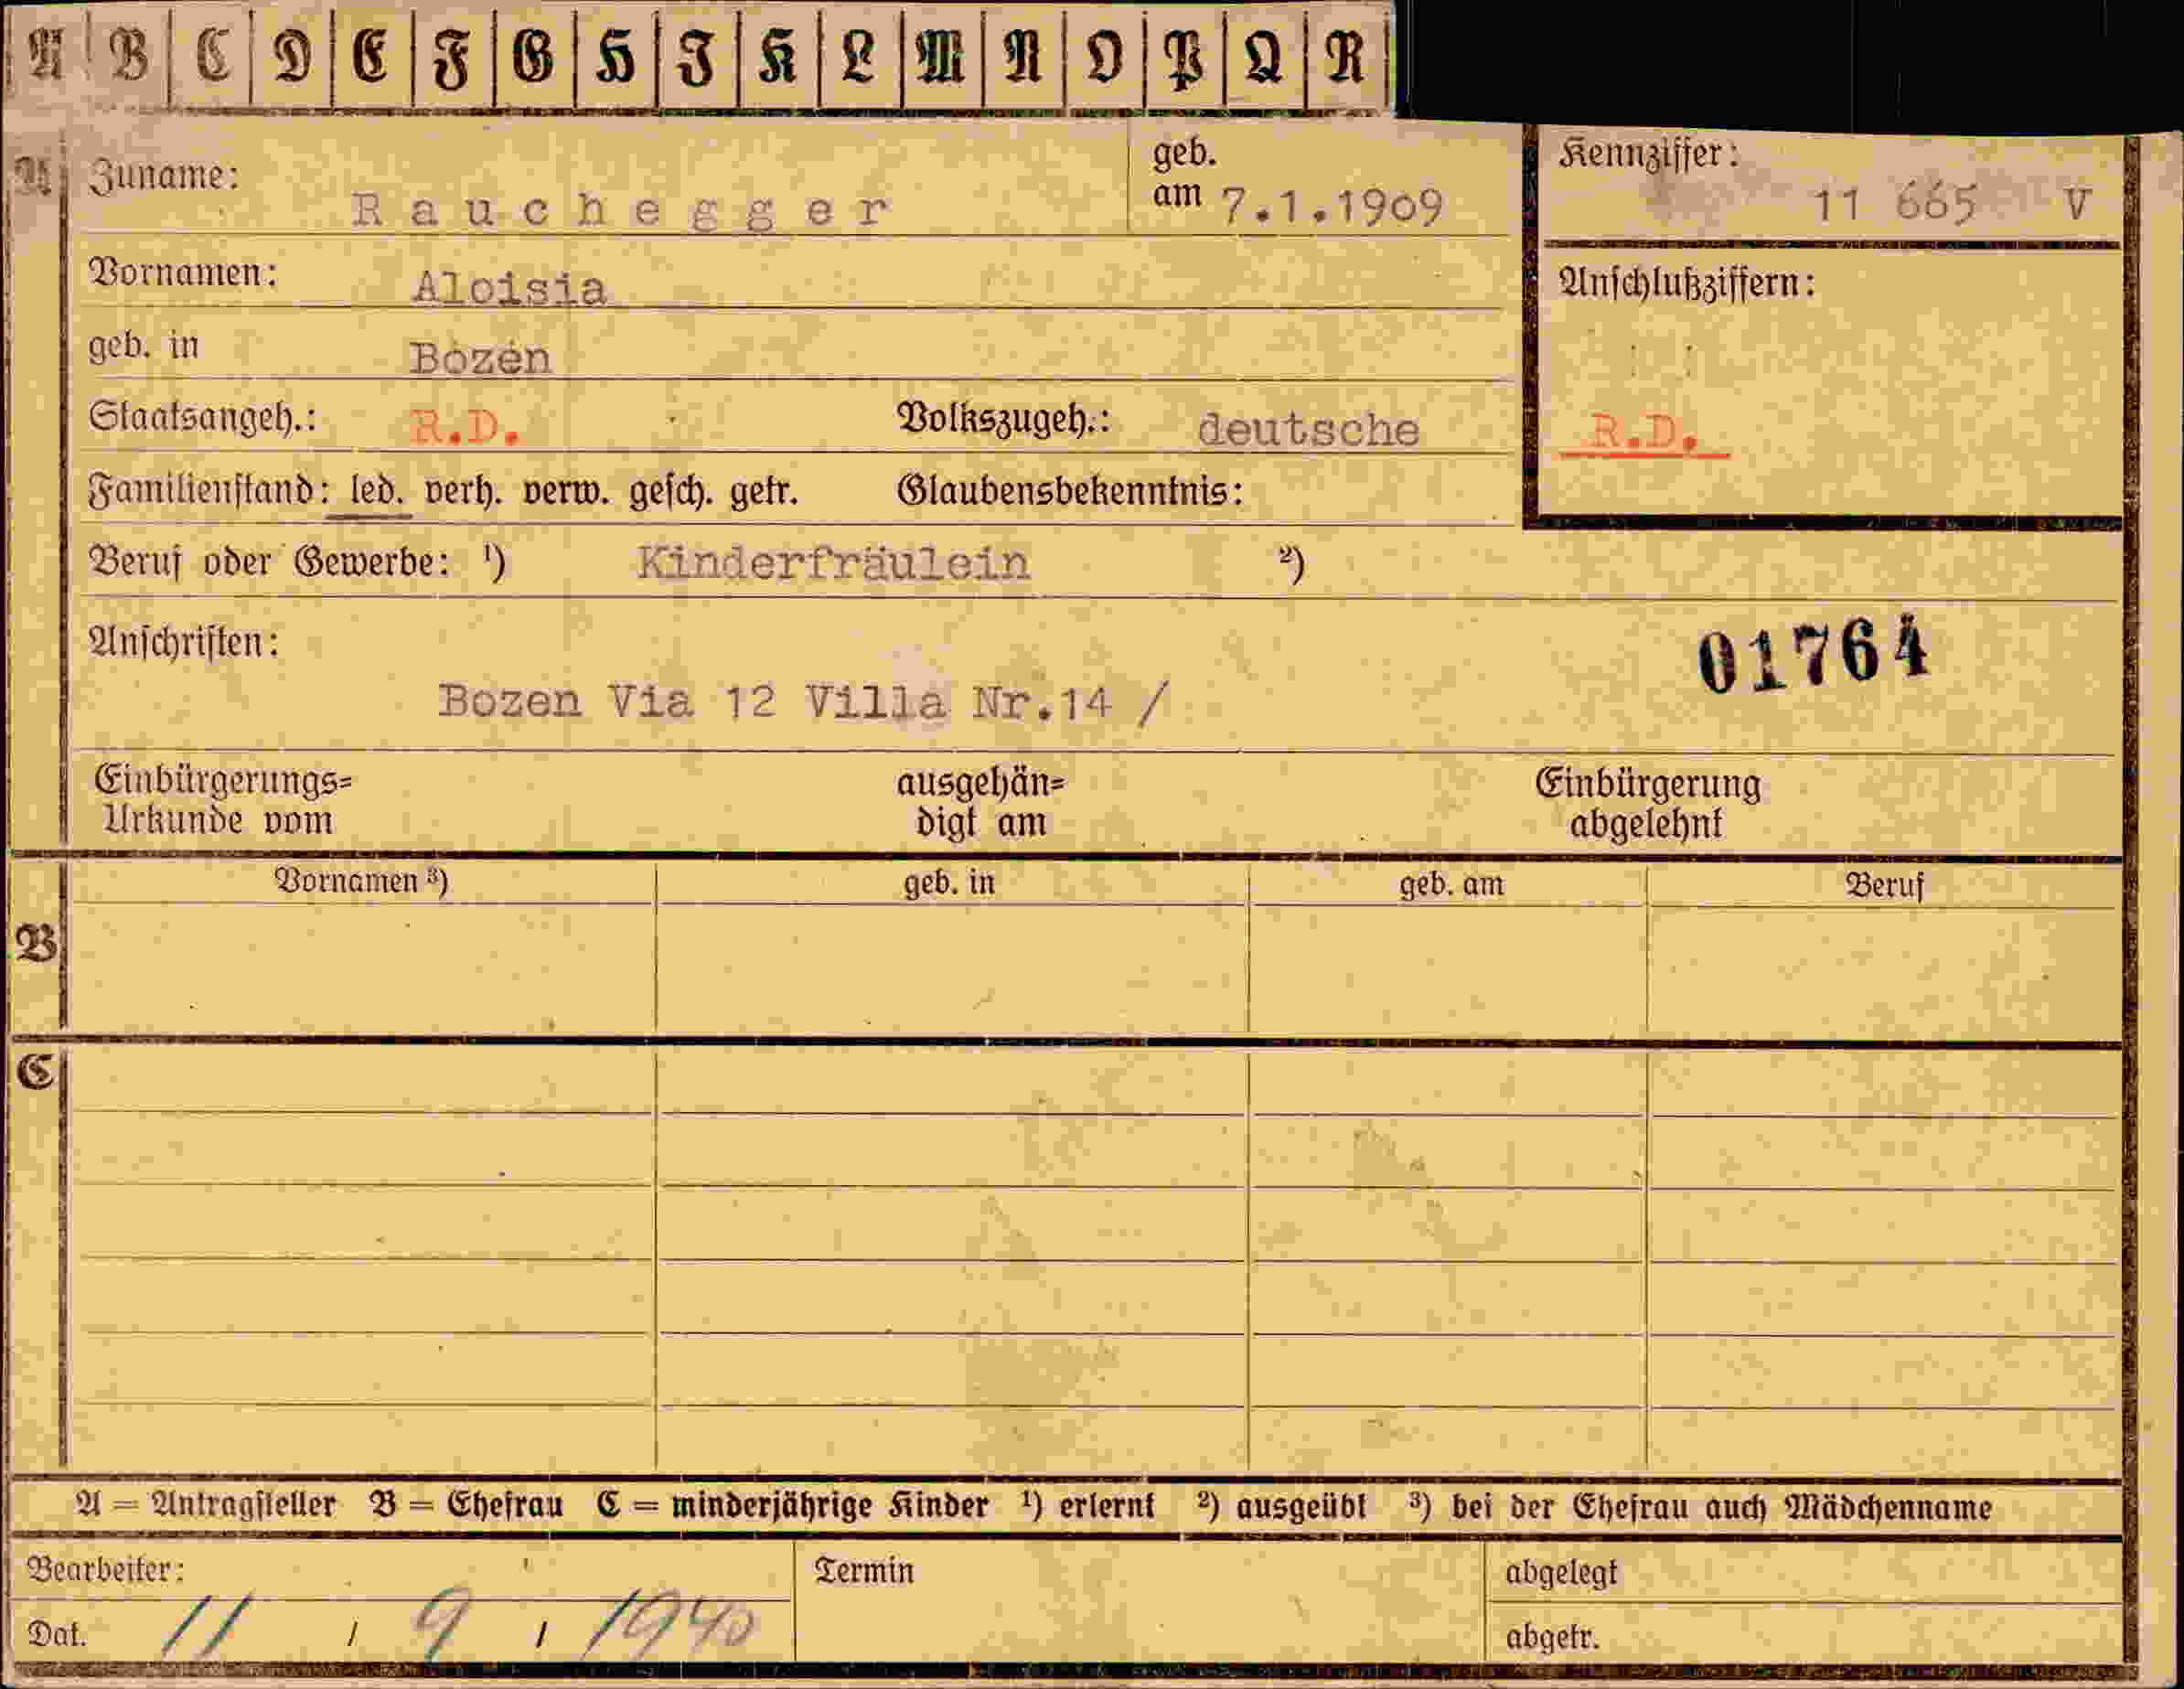 A B C D E F G H I K L M N O P Q R
A Zuname: Rauchegger geb. am 7.1.1909 Kennziffer: 11 665 V
Vornamen: Aloisia Anschlußziffern:
geb. in Bozen
Staatsangeh.: R.D. Volkszugeh.: deutsche R.D.
Familienstand: led. verh. verw. gesch. getr. Glaubensbekenntnis:
Beruf oder Gewerbe: ¹) Kinderfräulein ²)
Anschriften: 01764
Bozen Via 12 Villa Nr.14 /
Einbürgerungs= ausgehän= Einbürgerung
Urkunde vom digt am abgelehnt
Vornamen ³) geb. in geb. am Beruf
B
C
A = Antragsteller B = Ehefrau C = minderjährige Kinder ¹) erlernt ²) ausgeübt ³) bei der Ehefrau auch Mädchenname
Bearbeiter: Termin abgelegt
Dat. 11 / 9 / 1940 abgetr.